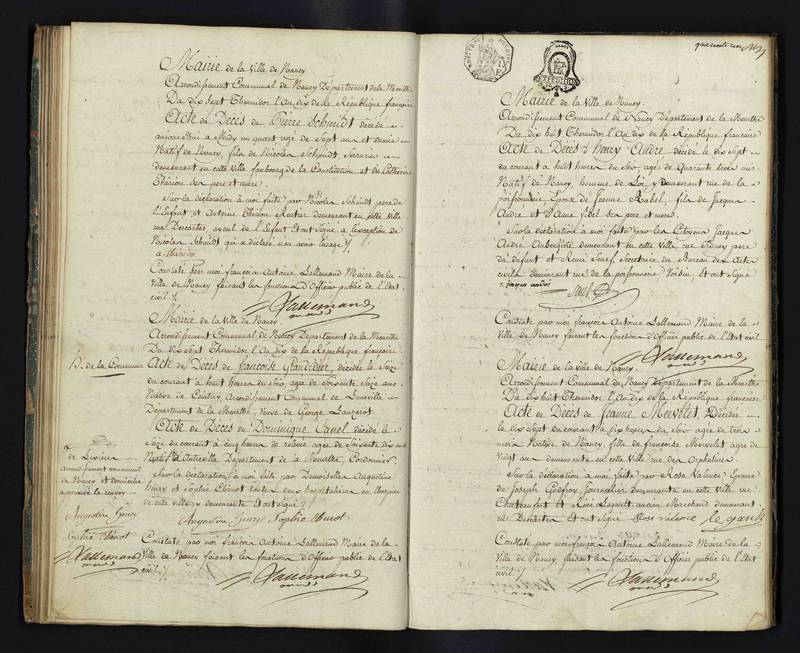 Mairie de la Ville de Nancy
Arrondissement Communal de Nancy Département de la Meurthe
Du dix Sept Thermidor l'An dix de la République française
Acte de Décès de Pierre Schmidt décédé
aujourd'hui à Midy un quart agé de Sept ans et demi
Natif de Nancy, fils de Nicolas Schmidt, Serrurier
demeurant en cette Ville faubourg de la Constitution et de Catherine
Thérion ses pere et mere.
Sur la déclaration à moi faite par Nicolas Schmidt pere de
l'Enfant et Antoine Thérion Rentier demeurant en cette Ville
rue Descartes, ayeul de l'Enfant et ont Signé à l'exception de
Nicolas Schmidt qui a déclaré n'en avoir l'usage
Constaté par moi françois Antoine Lallemand Maire de la
Ville de Nancy faisant les fonctions d'Officier public de l'Etat
civil
Lallemand
Mairie de la Ville de Nancy
Arrondissement Communal de Nancy Département de la Meurthe
Du dix Sept Thermidor l'An dix de la République française
H. de la Commune
Acte de Décès de françoise Grandidier, décédée le Seize
du courant à huit heures du Soir, agée de Soixante Seize ans
Native de Département Arrondissement Communal de Lunéville
Département de la Meurthe, Veuve de George
Acte de Décès de Dominique décédé le
Seize du courant à cinq heures de relevée agé de Soixante dix ans
Natif d'Autreville Département de la Meurthe, Cordonnier
Sur la déclaration à moi faite par Demoiselles Augustine
Henry et Sophie Thenot toutes deux hospitalieres en l'hospice
de cette Ville y demeurantes et ont Signé
Augustine Henry Sophie Thenot
arrondissement communal
de Nancy et
approuvé le renvoy
Augustine Henry
Sophie Thenot
Lallemand
Constaté par moi françois Antoine Lallemand Maire de la
Ville de Nancy faisant les fonctions d'Officier public de l'Etat
civil
Lallemand
quarante un
Mairie de la Ville de Nancy
Arrondissement Communal de Nancy Département de la Meurthe
Du dix huit Thermidor l'An dix de la République française
Acte de Décès d'Henry André décédé le dix Sept
du courant à huit heures du Soir, agé de Quarante trois ans
Natif de Nancy, homme de Loi, y demeurant rue de la
poissonnerie Epoux de Jeanne Rabel, fils de Jacques
André et d'Anne fidel ses pere et mere.
Sur la déclaration à moi faite par les Citoyens Jacques
André Aubergiste demeurant en cette Ville rue Sidney pere
du défunt et Remi Secrétaire du Bureau des Actes
civils demeurant rue de la poissonnerie Voisin, et ont Signé
jacque andré
Constaté par moi françois Antoine Lallemand Maire de la
Ville de Nancy faisant les fonctions d'Officier public de l'Etat civil
Lallemand
Mairie de la Ville de Nancy
Arrondissement Communal de Nancy Département de la Meurthe
Du dix huit Thermidor l'An dix de la République française
Acte de Décès de Jeanne Mervelet, Décédée
le dix Sept du courant à six heures du Soir agée de trois
mois Native de Nancy, fille de françoise Mervelet agée de
Vingt ans demeurante en cette Ville rue des Orphelines
Sur la déclaration à moi faite par Rose Valence Epouse
de Joseph Godfroy Journalier demeurante en cette Ville rue
Chateaufort et ancien Marchand demeurant
et ont Signé Rose valence
Constaté par moi françois Antoine Lallemand Maire de la
Ville de Nancy faisant les fonctions d'Officier public de l'Etat
civil
Lallemand